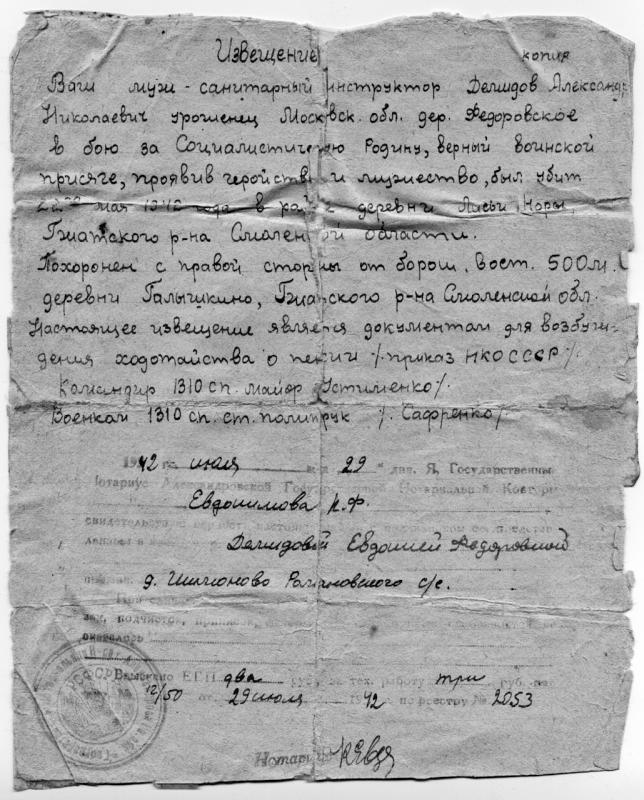 Извещение копия
Ваш муж - санитарный инструктор Демидов Александр
Николаевич уроженец Московск. обл. дер. Федоровское
в бою за Социалистическую Родину, верный воинской
присяге, проявив геройство и мужество, был убит
мая 1942 года в рай деревни Лисьи Норы,
Гжатского р-на Смоленской области.
Похоронен с правой стороны от борош. вост. 500 м.
деревни Палышкино, Гжатского р-на Смоленской обл.
Настоящее извещение является документам для возбуж-
дения ходотайства о пенсии /. приказ НКО СССР /.
Командир 1310 сп. майор Устименко /.
Военком 1310 сп. ст. политрук /. Сафренко /.
1942 г. июля м-ца "29" дня. Я, Государственный
Нотариус Александровской Государственной Нотариальной Конторы
Евдокимова К.Ф.
свидетельствую верность
Демидовой Евдокией Федоровной
д. Шимоново Романовского с/с.
При
зач. подчисток, приписок,
оказалось
Взыскано ЕГП два руб. за тех. работу три руб.
12/50 29 июля 42 по реестру № 2053
РСФСР
Нотариус КЕвд